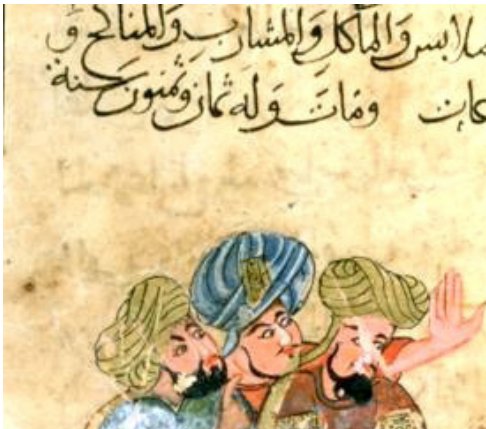 ملابس والمآكل والمشارب والمناكح و
كات ومات وله ثمان وثمنون سنة